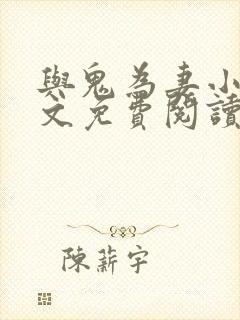 與鬼為妻小
文免費閱讀
陳薪宇